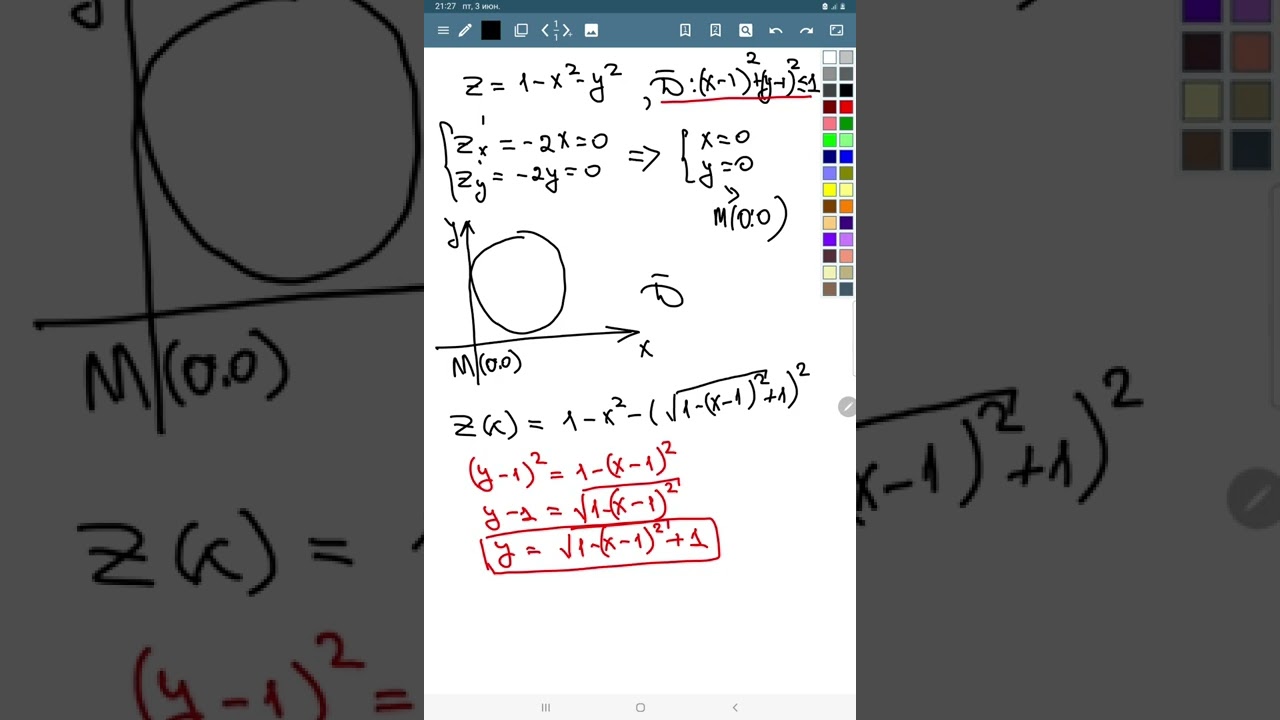 21:27 пт, 3 июн.
1
1
1
2
z = 1-x²-y² , D̄:(x-1)²+(y-1)²≤1
z'x = -2x=0 => x=0
z'y = -2y=0 y=0
M(0;0)
y
D̄
x
M(0.0)
Z(x) = 1-x²-(√1-(x-1)²+1)²
(y-1)² = 1-(x-1)²
y-1 = √1-(x-1)²
y = √1-(x-1)²+1
M(0.0)
Z(x) =
(y-1)² =
x-1)²+1)²